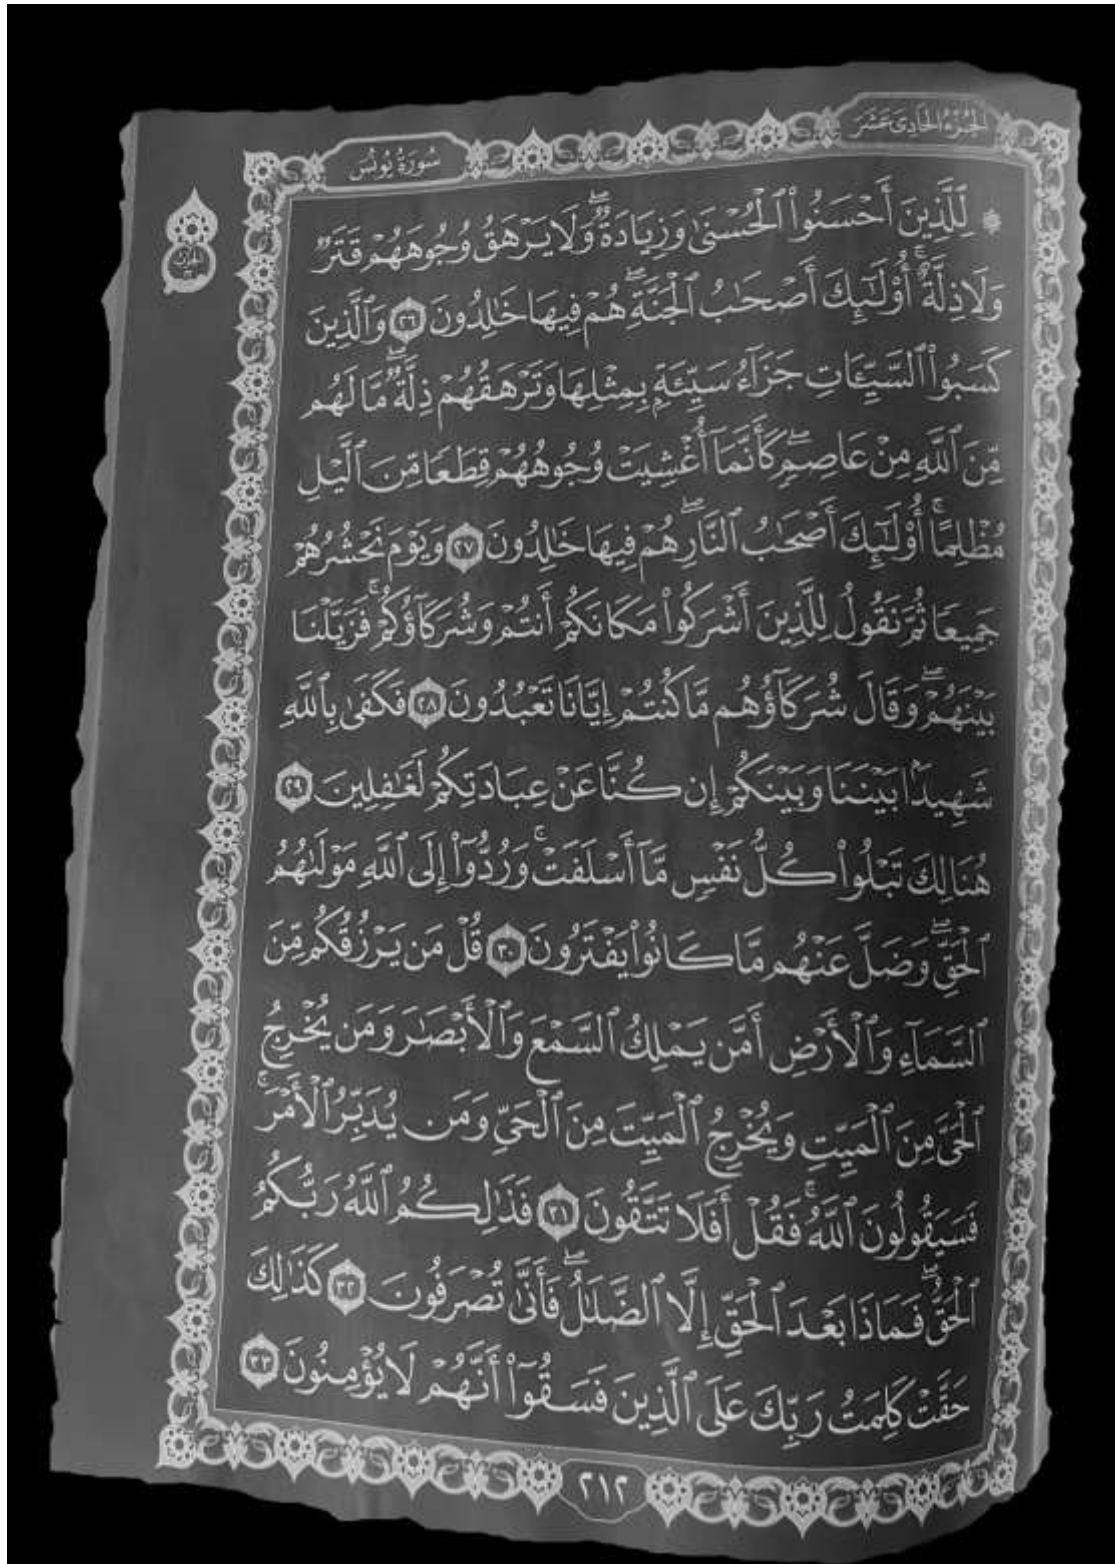 الجزء الحادي عشر
سورة يونس
۞ لِّلَّذِينَ أَحْسَنُوا۟ ٱلْحُسْنَىٰ وَزِيَادَةٌۖ وَلَا يَرْهَقُ وُجُوهَهُمْ قَتَرٌ
وَلَا ذِلَّةٌۚ أُو۟لَٰٓئِكَ أَصْحَٰبُ ٱلْجَنَّةِۖ هُمْ فِيهَا خَٰلِدُونَ ٢٦ وَٱلَّذِينَ
كَسَبُوا۟ ٱلسَّيِّـَٔاتِ جَزَآءُ سَيِّئَةٍۭ بِمِثْلِهَا وَتَرْهَقُهُمْ ذِلَّةٌۖ مَّا لَهُم
مِّنَ ٱللَّهِ مِنْ عَاصِمٍۖ كَأَنَّمَآ أُغْشِيَتْ وُجُوهُهُمْ قِطَعًا مِّنَ ٱلَّيْلِ
مُظْلِمًاۚ أُو۟لَٰٓئِكَ أَصْحَٰبُ ٱلنَّارِۖ هُمْ فِيهَا خَٰلِدُونَ ٢٧ وَيَوْمَ نَحْشُرُهُمْ
جَمِيعًا ثُمَّ نَقُولُ لِلَّذِينَ أَشْرَكُوا۟ مَكَانَكُمْ أَنتُمْ وَشُرَكَآؤُكُمْۚ فَزَيَّلْنَا
بَيْنَهُمْۖ وَقَالَ شُرَكَآؤُهُم مَّا كُنتُمْ إِيَّانَا تَعْبُدُونَ ٢٨ فَكَفَىٰ بِٱللَّهِ
شَهِيدًۢا بَيْنَنَا وَبَيْنَكُمْ إِن كُنَّا عَنْ عِبَادَتِكُمْ لَغَٰفِلِينَ ٢٩
هُنَالِكَ تَبْلُوا۟ كُلُّ نَفْسٍ مَّآ أَسْلَفَتْۚ وَرُدُّوٓا۟ إِلَى ٱللَّهِ مَوْلَىٰهُمُ
ٱلْحَقِّۖ وَضَلَّ عَنْهُم مَّا كَانُوا۟ يَفْتَرُونَ ٣٠ قُلْ مَن يَرْزُقُكُم مِّنَ
ٱلسَّمَآءِ وَٱلْأَرْضِ أَمَّن يَمْلِكُ ٱلسَّمْعَ وَٱلْأَبْصَٰرَ وَمَن يُخْرِجُ
ٱلْحَىَّ مِنَ ٱلْمَيِّتِ وَيُخْرِجُ ٱلْمَيِّتَ مِنَ ٱلْحَىِّ وَمَن يُدَبِّرُ ٱلْأَمْرَۚ
فَسَيَقُولُونَ ٱللَّهُۚ فَقُلْ أَفَلَا تَتَّقُونَ ٣١ فَذَٰلِكُمُ ٱللَّهُ رَبُّكُمُ
ٱلْحَقُّۖ فَمَاذَا بَعْدَ ٱلْحَقِّ إِلَّا ٱلضَّلَٰلُۖ فَأَنَّىٰ تُصْرَفُونَ ٣٢ كَذَٰلِكَ
حَقَّتْ كَلِمَتُ رَبِّكَ عَلَى ٱلَّذِينَ فَسَقُوٓا۟ أَنَّهُمْ لَا يُؤْمِنُونَ ٣٣
٢١٢